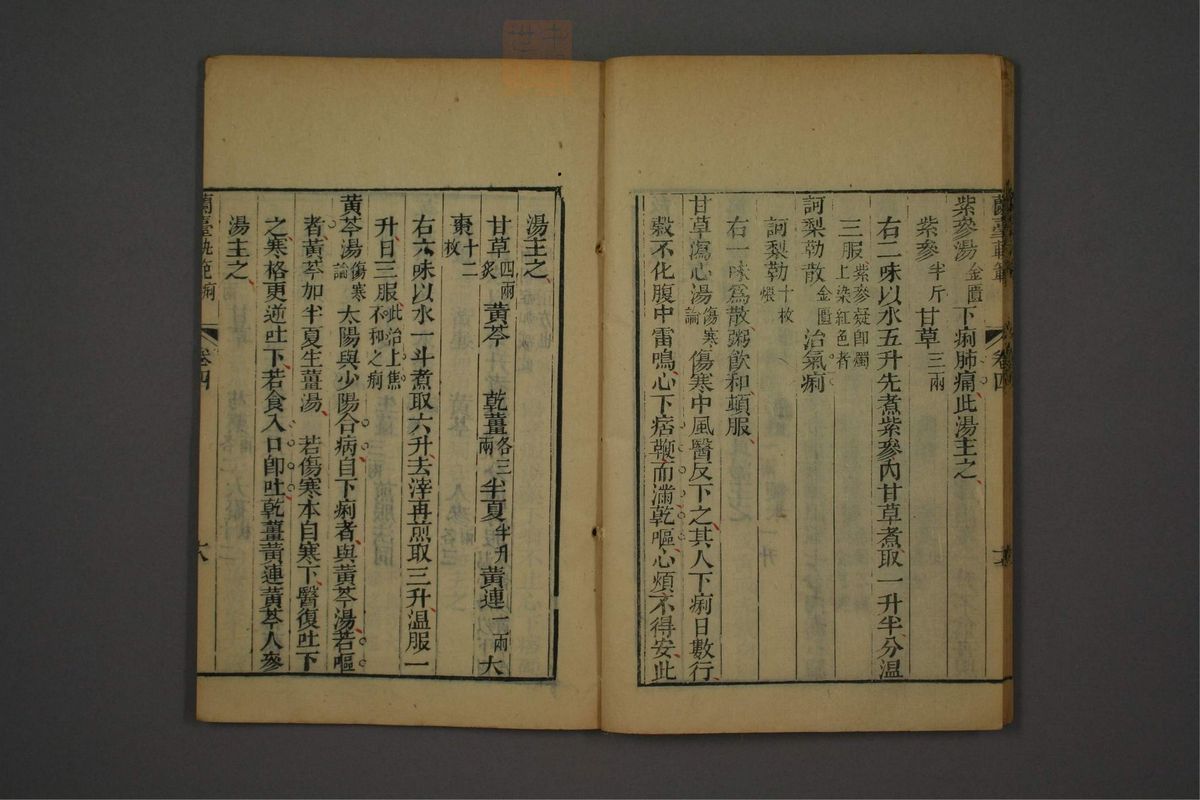 蘭臺軌範 卷四
紫參湯金匱下痢肺痛此湯主之
紫參半斤 甘草三兩
右二味以水五升先煮紫參內甘草煮取一升半分溫
三服紫參疑卽獨上染紅色者
訶梨勒散金匱治氣痢
訶梨勒十枚煨
右一味爲散粥飲和頓服
甘草瀉心湯傷寒論傷寒中風醫反下之其人下痢日數行
穀不化腹中雷鳴心下痞鞕而滿乾嘔心煩不得安此
湯主之
甘草四兩炙 黃芩 乾薑各三兩 半夏半升 黃連一兩 大
棗十二枚
右六味以水一斗煮取六升去滓再煎取三升溫服一
升日三服此治上焦不和之痢
黃芩湯傷寒論太陽與少陽合病自下痢者與黃芩湯若嘔
者黃芩加半夏生薑湯 若傷寒本自寒下醫復吐下
之寒格更逆吐下若食入口卽吐乾薑黃連黃芩人參
湯主之
蘭臺軌範 痢 卷四 六